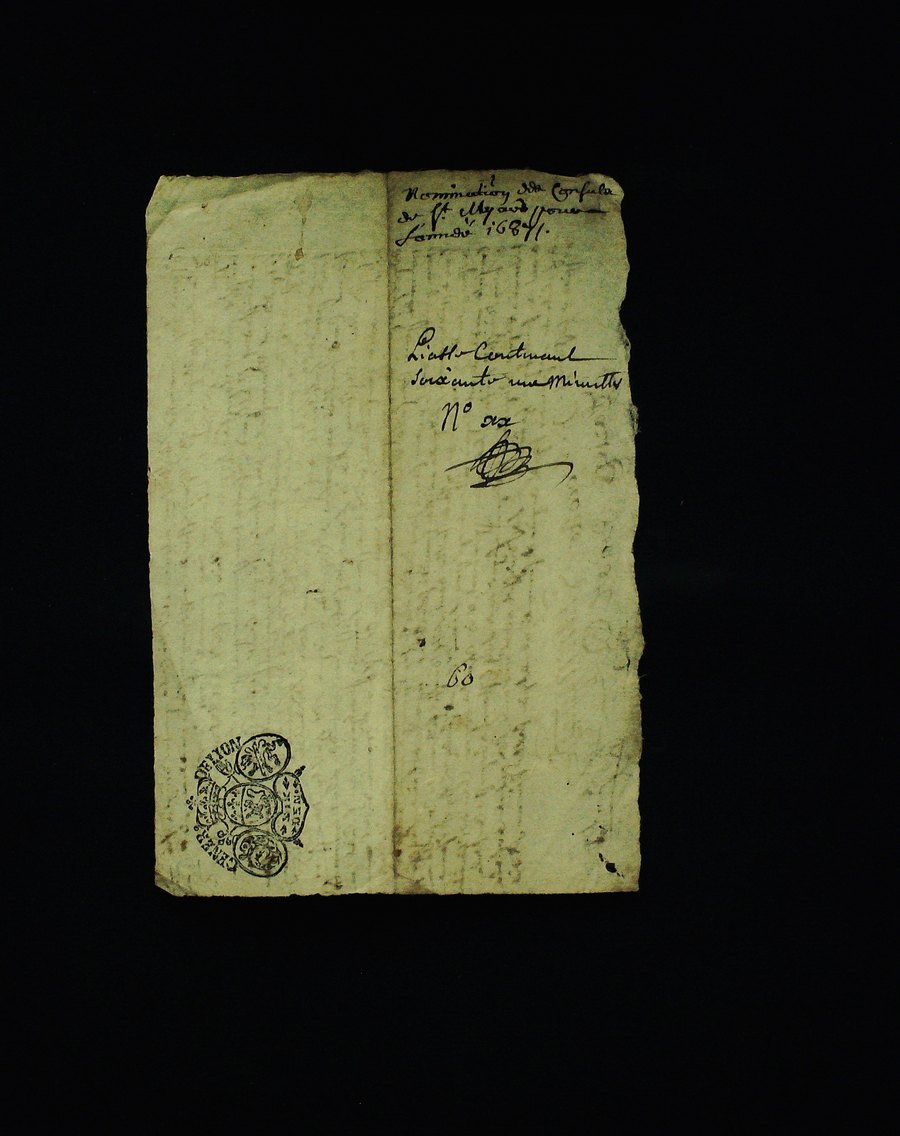 Nomination des Consuls
de St Myard pour
Lannéé 168
Liasse Contenant
soixante une Minuttes
N° xx
60
DE LYON
GENER